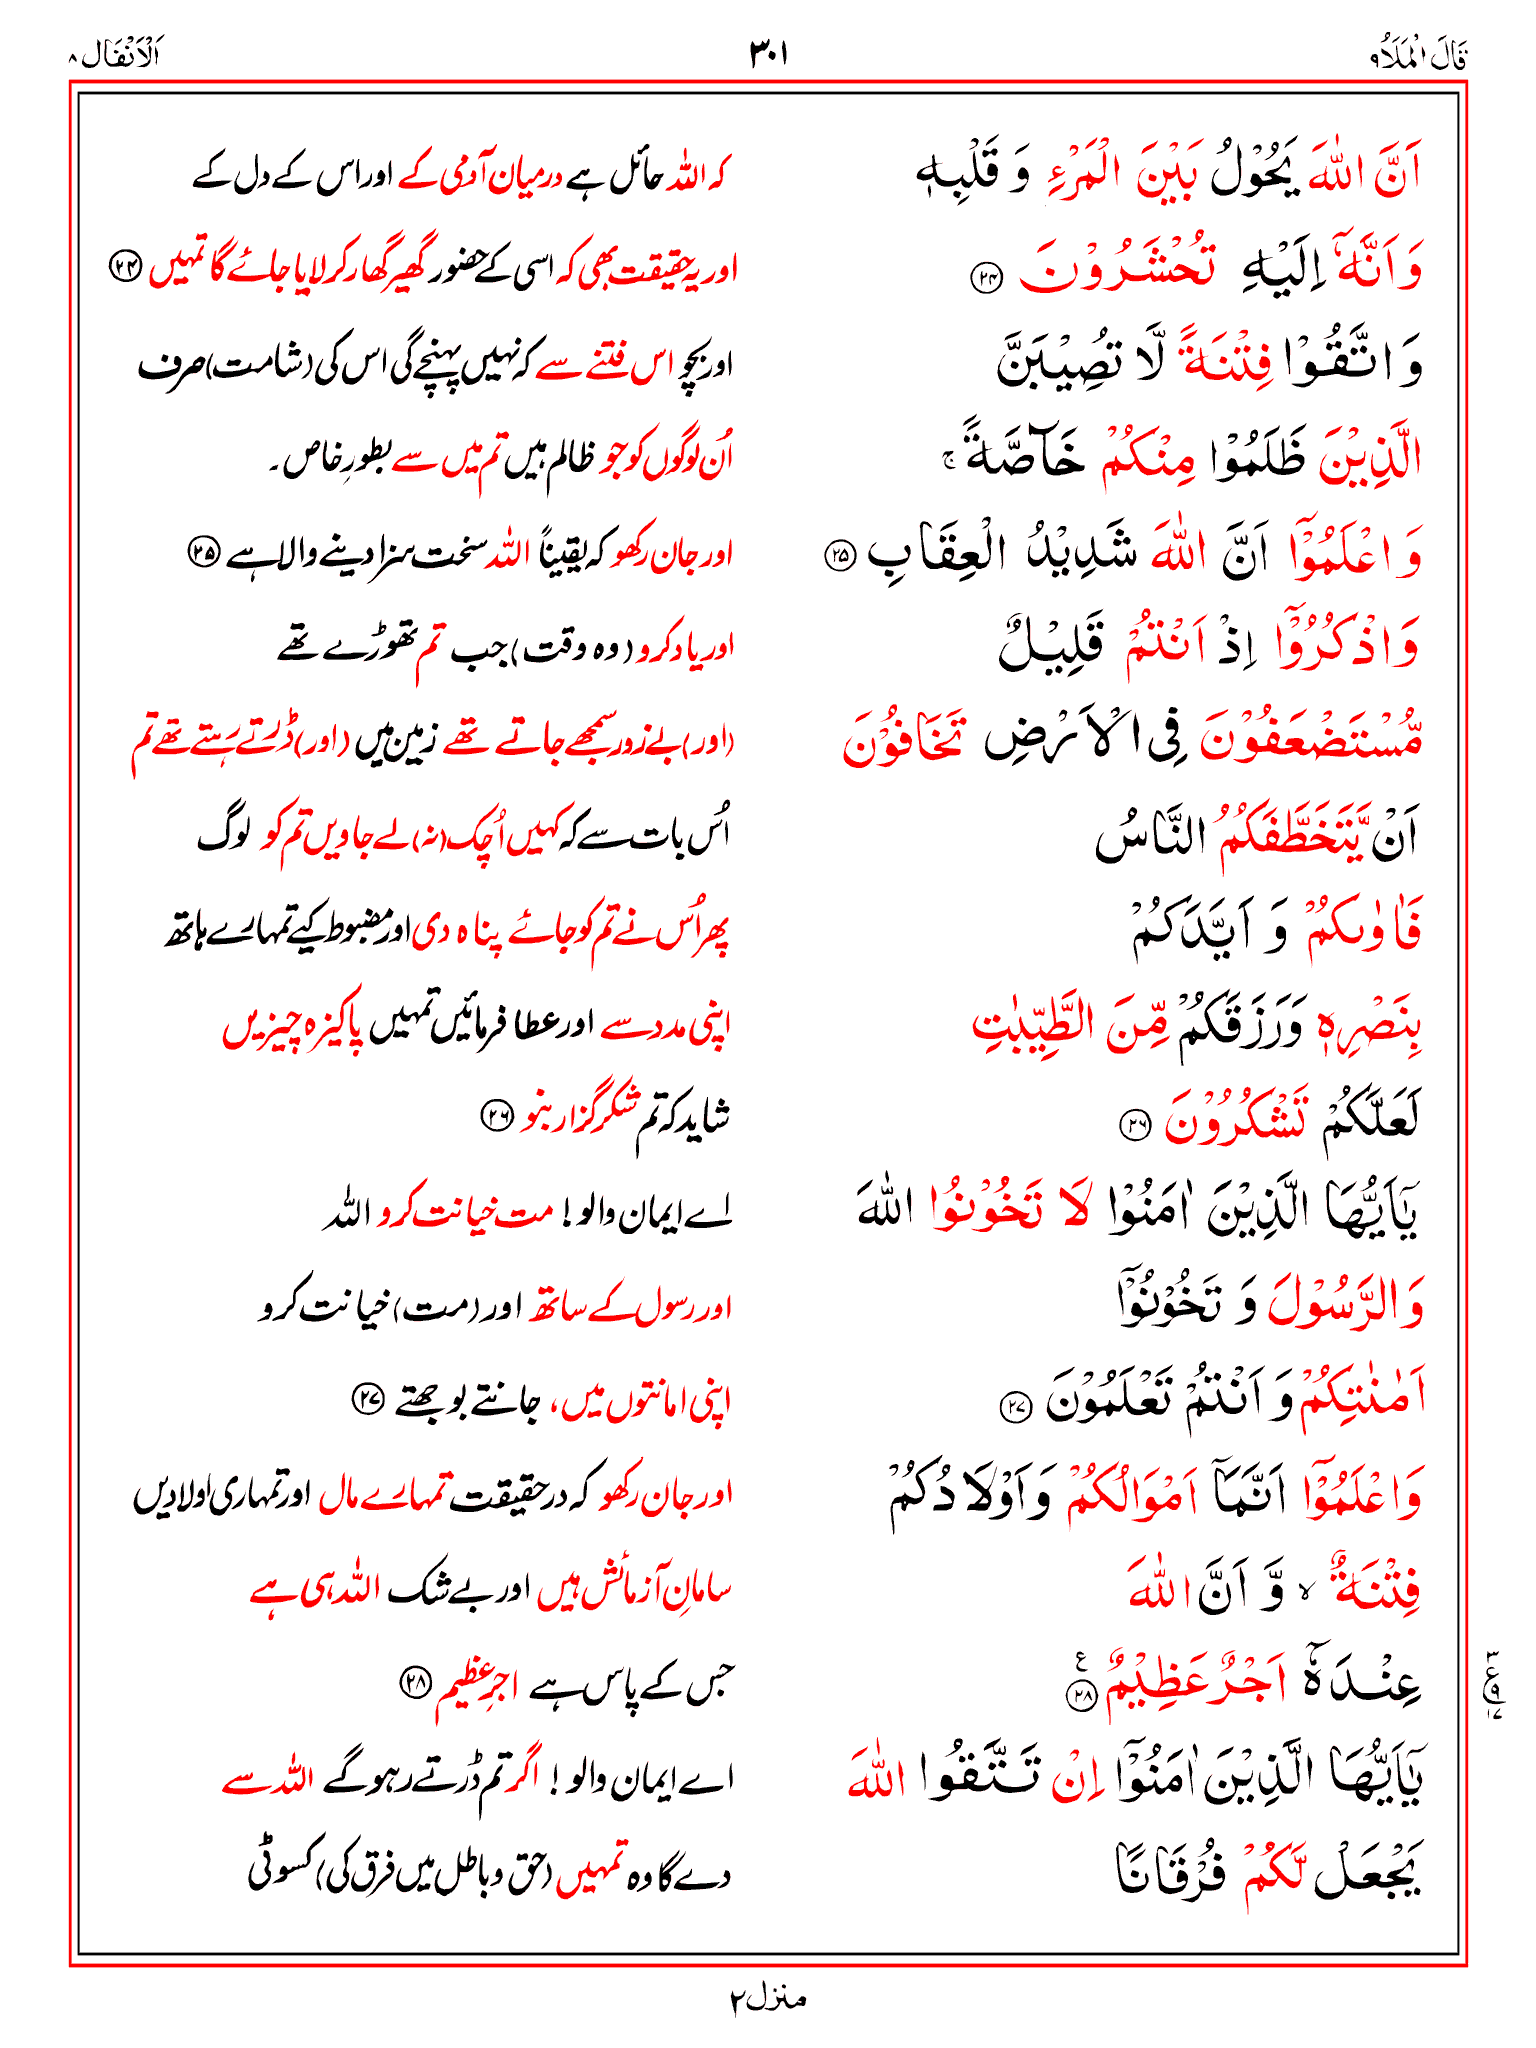 قَالَ الْمَلَاُ ۹ ۳۰۱ اَلْاَنْفَال ۸
اَنَّ اللّٰهَ يَحُوْلُ بَيْنَ الْمَرْءِ وَ قَلْبِهٖ کہ اللہ حائل ہے درمیان آدمی کے اور اس کے دل کے
وَ اَنَّهٗۤ اِلَيْهِ تُحْشَرُوْنَ ۲۴ اور یہ حقیقت بھی کہ اسی کے حضور گھیر گھار کر لایا جائے گا تمہیں ۲۴
وَ اتَّقُوْا فِتْنَةً لَّا تُصِيْبَنَّ اور بچو اس فتنے سے کہ نہیں پہنچے گی اس کی (شامت) صرف
الَّذِيْنَ ظَلَمُوْا مِنْكُمْ خَآصَّةً ۚ اُن لوگوں کو جو ظالم ہیں تم میں سے بطورِ خاص۔
وَ اعْلَمُوْۤا اَنَّ اللّٰهَ شَدِيْدُ الْعِقَابِ ۲۵ اور جان رکھو کہ یقیناً اللہ سخت سزا دینے والا ہے ۲۵
وَ اذْكُرُوْۤا اِذْ اَنْتُمْ قَلِيْلٌ اور یاد کرو (وہ وقت) جب تم تھوڑے تھے
مُّسْتَضْعَفُوْنَ فِي الْاَرْضِ تَخَافُوْنَ (اور) بے زور سمجھے جاتے تھے زمین میں (اور) ڈرتے رہتے تھے تم
اَنْ يَّتَخَطَّفَكُمُ النَّاسُ اُس بات سے کہ کہیں اُچک (نہ) لے جاویں تم کو لوگ
فَاٰوٰىكُمْ وَ اَيَّدَكُمْ پھر اُس نے تم کو جائے پناہ دی اور مضبوط کیے تمہارے ہاتھ
بِنَصْرِهٖ وَرَزَقَكُمْ مِّنَ الطَّيِّبٰتِ اپنی مدد سے اور عطا فرمائیں تمہیں پاکیزہ چیزیں
لَعَلَّكُمْ تَشْكُرُوْنَ ۲۶ شاید کہ تم شکر گزار بنو ۲۶
يٰۤاَيُّهَا الَّذِيْنَ اٰمَنُوْا لَا تَخُوْنُوا اللّٰهَ اے ایمان والو! مت خیانت کرو اللہ
وَ الرَّسُوْلَ وَ تَخُوْنُوْۤا اور رسول کے ساتھ اور (مت) خیانت کرو
اَمٰنٰتِكُمْ وَ اَنْتُمْ تَعْلَمُوْنَ ۲۷ اپنی امانتوں میں، جانتے بوجھتے ۲۷
وَ اعْلَمُوْۤا اَنَّمَاۤ اَمْوَالُكُمْ وَ اَوْلَادُكُمْ اور جان رکھو کہ درحقیقت تمہارے مال اور تمہاری اولادیں
فِتْنَةٌ ۙ وَّ اَنَّ اللّٰهَ سامانِ آزمائش ہیں اور بے شک اللہ ہی ہے
عِنْدَهٗۤ اَجْرٌ عَظِيْمٌ ع ۲۸ جس کے پاس ہے اجرِ عظیم ۲۸
۳ ع ۹ ۱۷
يٰۤاَيُّهَا الَّذِيْنَ اٰمَنُوْۤا اِنْ تَتَّقُوا اللّٰهَ اے ایمان والو! اگر تم ڈرتے رہو گے اللہ سے
يَجْعَلْ لَّكُمْ فُرْقَانًا دے گا وہ تمہیں (حق و باطل میں فرق کی) کسوٹی
منزل ۲